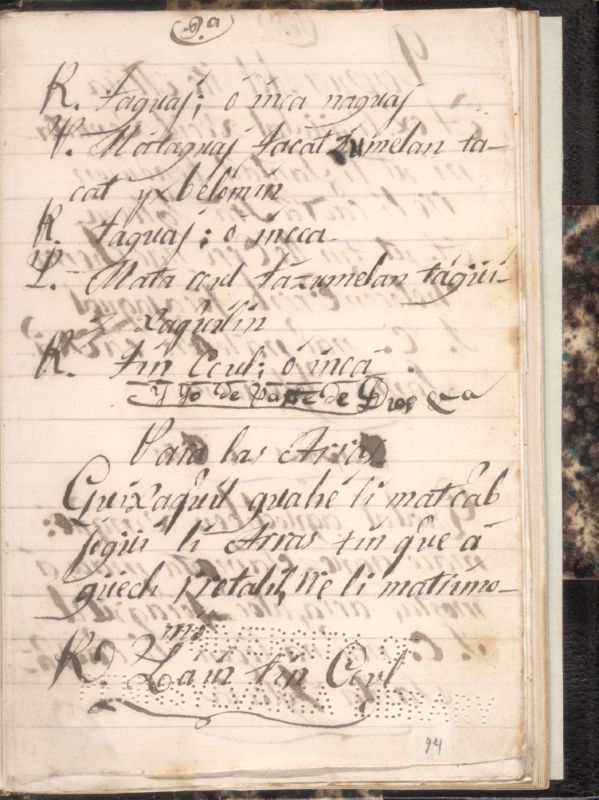 R. taguaj; ó inca naguaj
V. Mátaguaj tacat zumelan ta-
cat yx belomin
R. taguaj; ó incca.
V. Mata cul tazumelan tagüi-
xaquilin
R. tin Ccul; ó inca
Y Yo de parte de Dios &a
Para las Arras
Guixaquil guahe li mat cab
joguí li Arras tin que á
güech retalil, re li matrimo-
mo
R. Lain tin Ccul
94